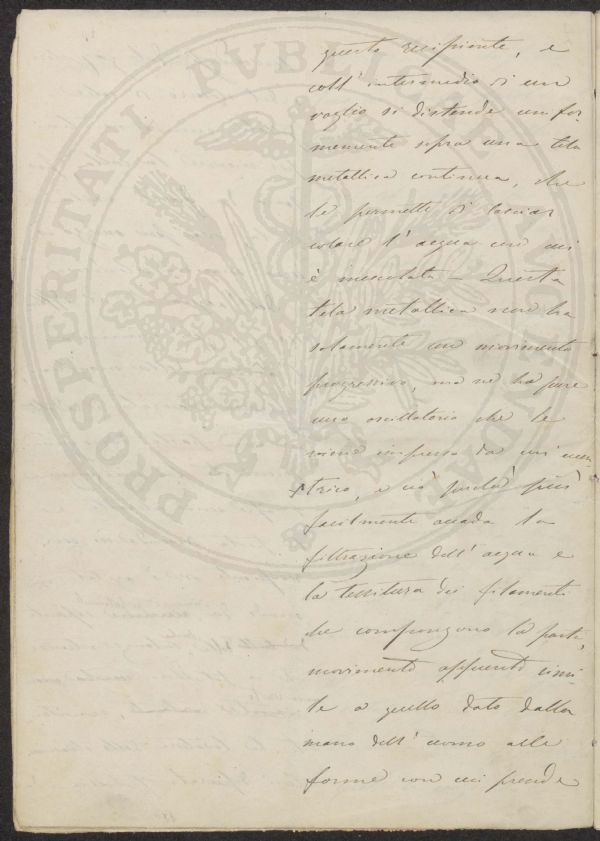 PROSPERITATI PVBLICAE AVGENDAE
questo recipiente, e
coll' intermedio di un
vaglio si distende unifor
memente sopra una tela
metallica continua, che
le permette di lasciar
colare l' acqua con cui
è mescolata – Questa
tela metallica non ha
solamente un movimento
progressivo, ma ne ha pure
uno oscillatorio che le
viene impresso da un' eccen
trico, e ciò perché più
facilmente accada la
filtrazione dell' acqua e
la tessitura dei filamenti
che compongono la pasta,
movimento appunto simi
le a quello dato dalla
mano dell' uomo alle
forme con cui prende